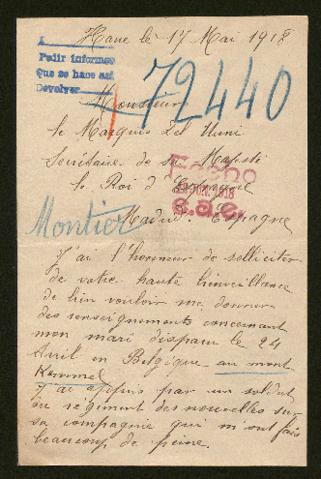 Hane le 17 Mai 1918
A
Pedir informes
Que se hace así
Devolver
72440
Monsieur
le Marquis Del Muni
Secrétaire de sa Majesté
le Roi d'Espagne
Fecho
JUN. 1918
e.a.e.
Madrid. Espagne
Montier
J'ai l'honneur de solliciter
de votre haute bienveillance
de bien vouloir me donner
des renseignements concernant
mon mari disparu le 24
Avril en Belgique au mont
Kemmel
J'ai appris par un soldat
du régiment des nouvelles sur
sa compagnie qui m'ont fait
beaucoup de peine.